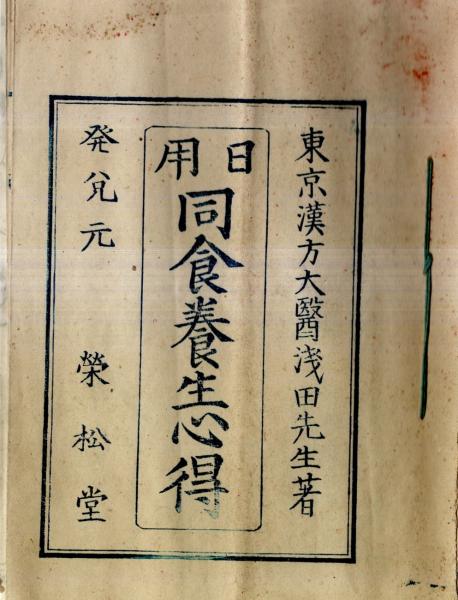 東京漢方大醫浅田先生著
日用
同食養生心得
発兌元 榮松堂